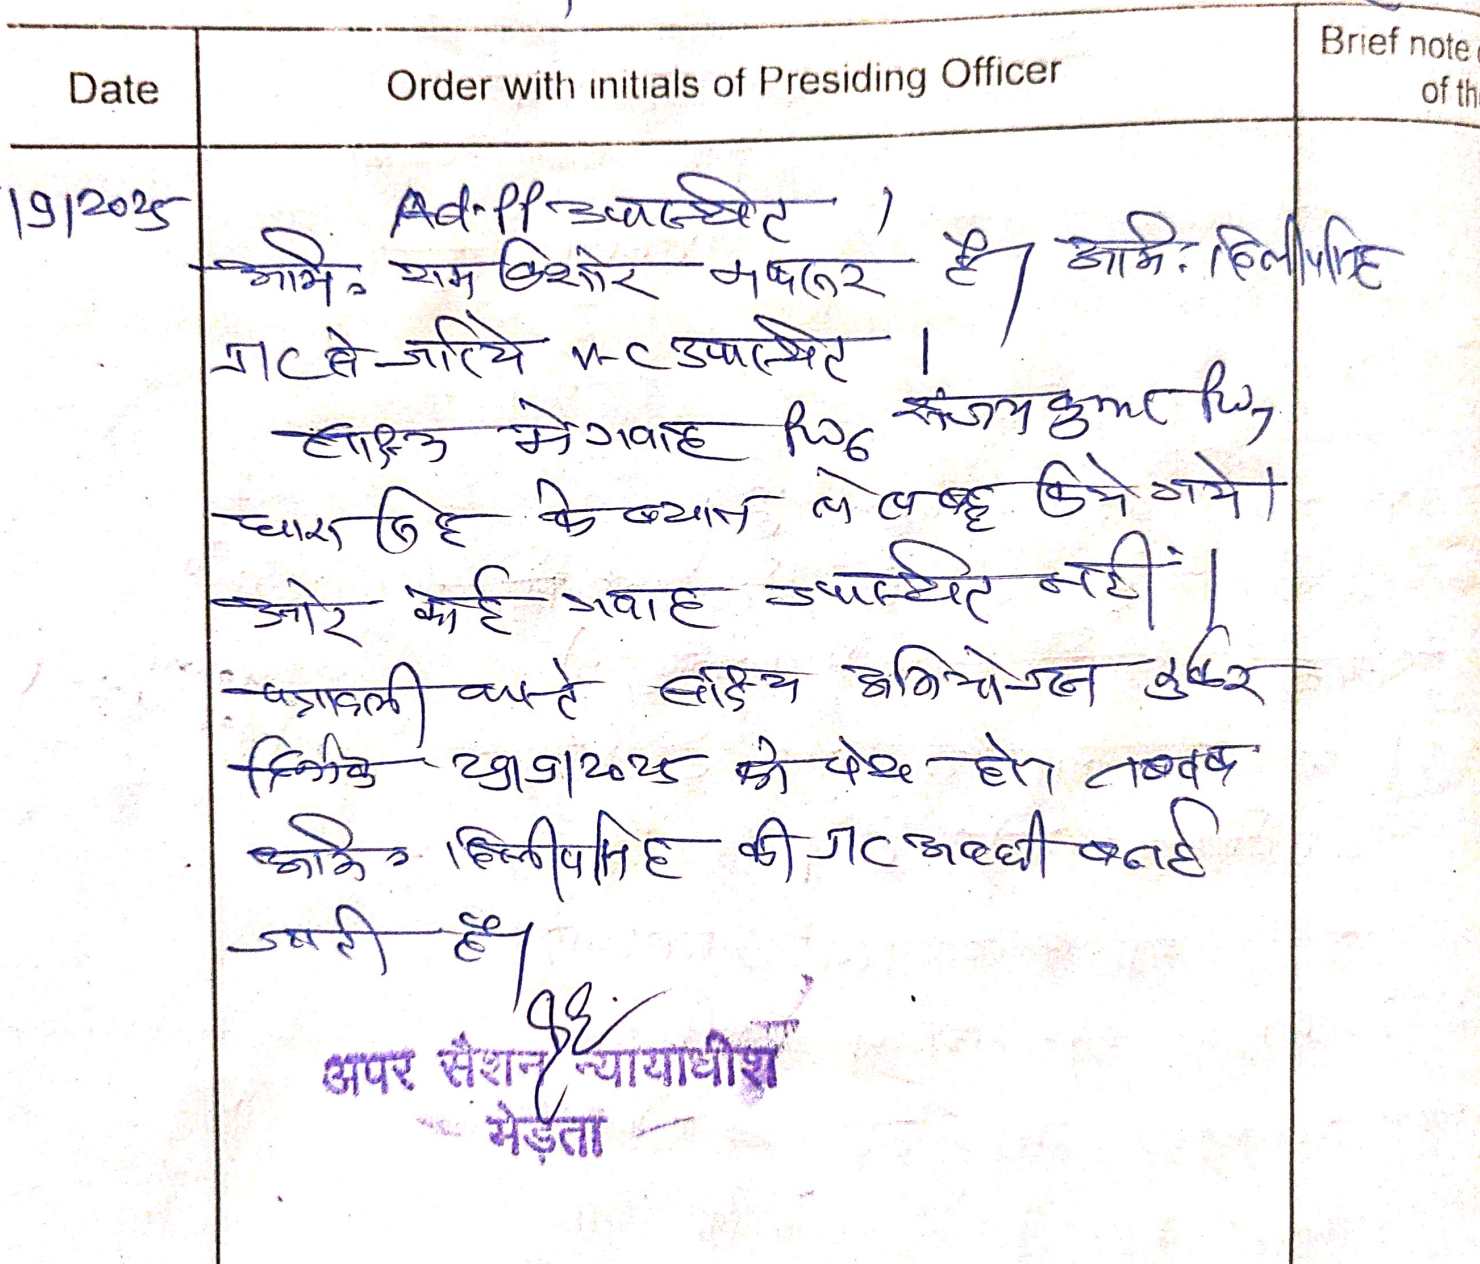 Date
Order with initials of Presiding Officer
Brief note
of th
/9/2025
Ad. PP उपस्थित ।
अभि० राम किशोर मफरूर है। अभि० दिलीपसिंह
JC से जरिये V-C उपस्थित ।
साक्ष्य मे गवाह PW6 संजय कुमार PW7
सिंह के बयान लेखबद्ध किये गये।
और कोई गवाह उपस्थित नहीं।
पत्रावली वास्ते साक्ष्य अभियोजन
दिनांक 29/9/2025 को पेश हो। तब तक
अभि० दिलीपसिंह की JC अवधी बढाई
जाती है।
अपर सैशन न्यायाधीश
मेड़ता